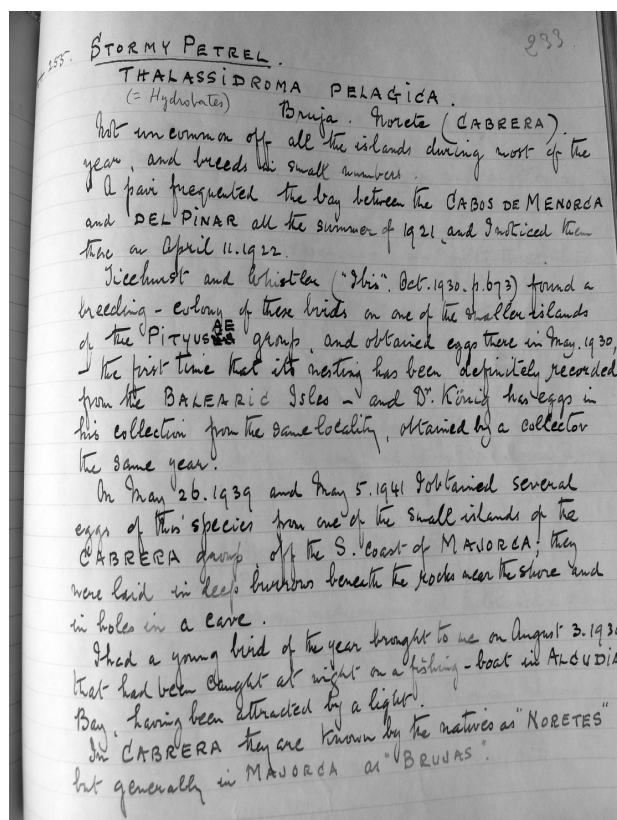 233
255. STORMY PETREL.
THALASSIDROMA PELAGICA.
(= Hydrobates) Bruja. Norete (CABRERA).
Not uncommon off all the islands during most of the
year, and breeds in small numbers.
A pair frequented the bay between the CABOS DE MENORCA
and DEL PINAR all the summer of 1921, and I noticed them
there on April 11. 1922.
Ticehurst and Whistler ("Ibis". Oct. 1930. p. 673) found a
breeding-colony of these birds on one of the smaller islands
of the PITYUSAE group, and obtained eggs there in May. 1930,
- the first time that its nesting has been definitely recorded
from the BALEARIC Isles - and Dr. König has eggs in
his collection from the same locality, obtained by a collector
the same year.
On May 26. 1939 and May 5. 1941 I obtained several
eggs of this species from one of the small islands of the
CABRERA group, off the S. Coast of MAJORCA; they
were laid in deep burrows beneath the rocks near the shore and
in holes in a cave.
I had a young bird of the year brought to me on August 3.
that had been caught at night on a fishing-boat in ALCUDIA
Bay, having been attracted by a light.
In CABRERA they are known by the natives as "NORETES"
but generally in MAJORCA as "BRUJAS".